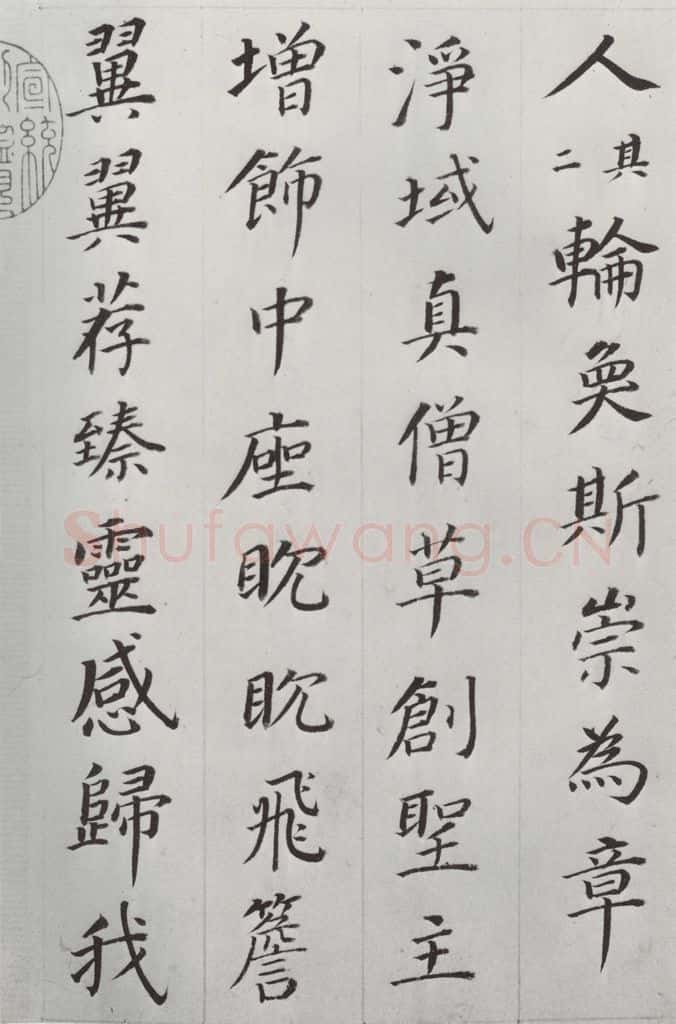 人其二輪奐斯崇為章
淨域真僧草創聖主
增飾中座眈眈飛簷
翼翼荐臻靈感歸我
宣統
Shufawang.CN